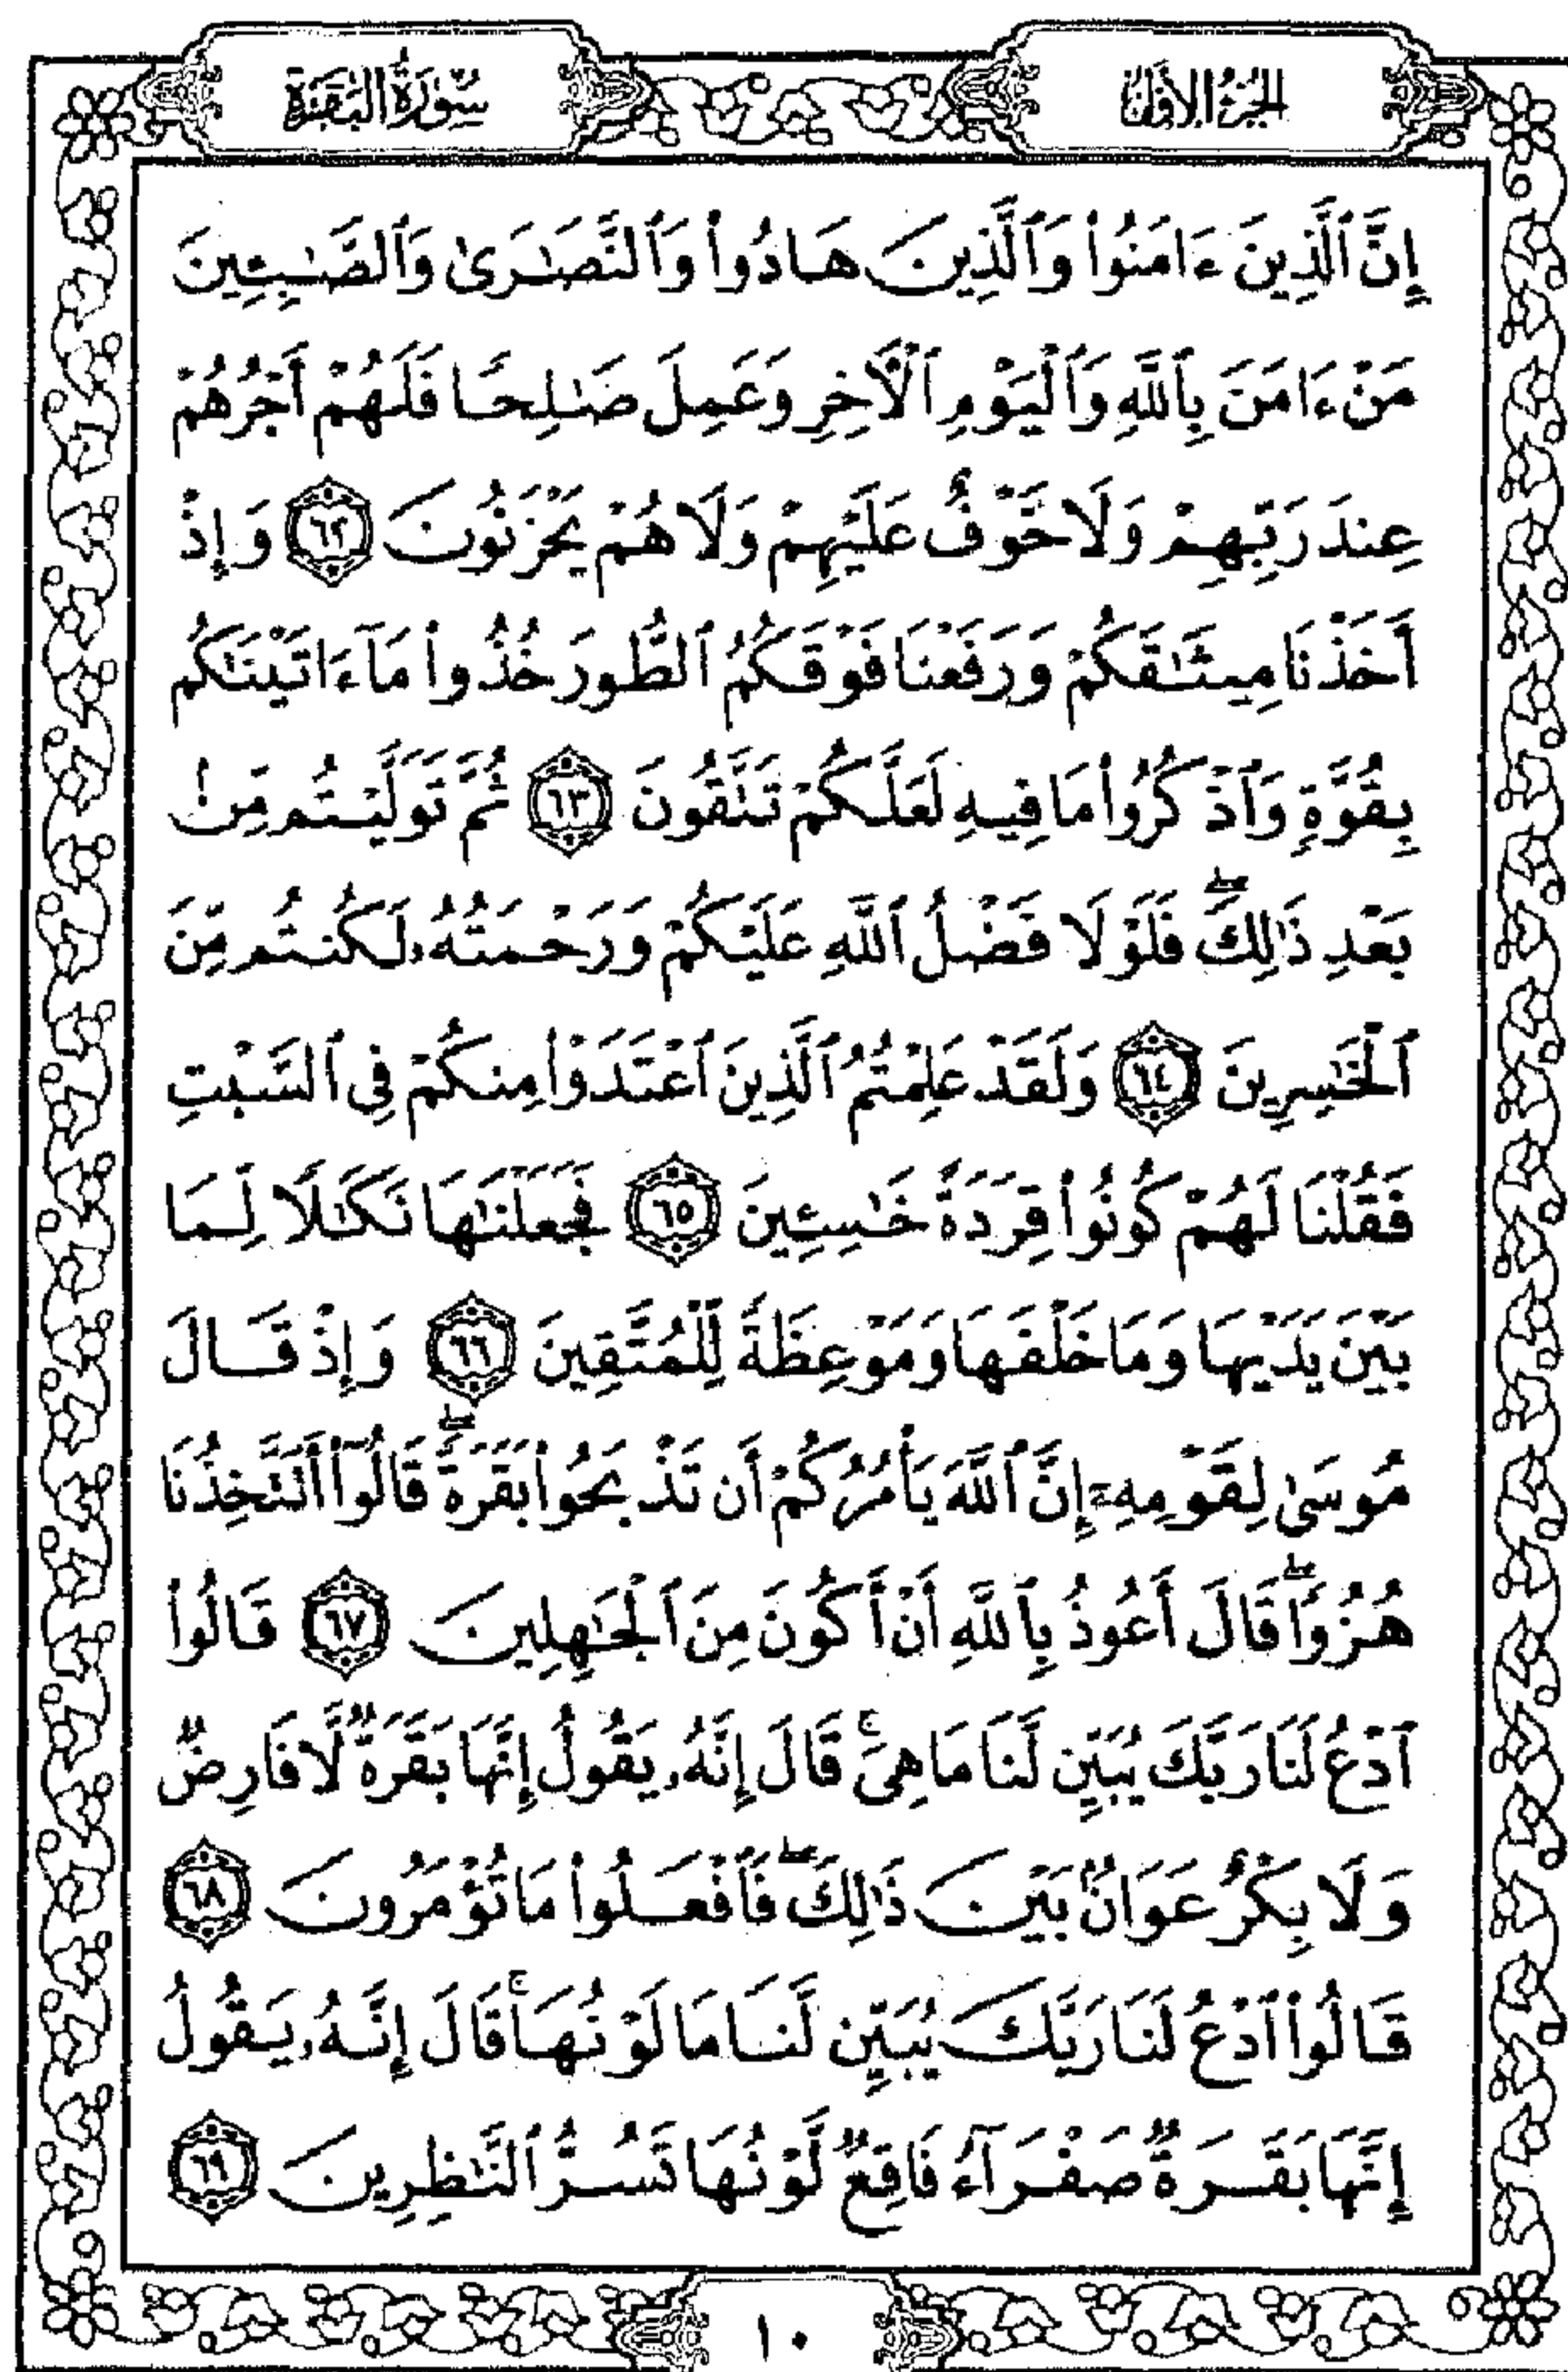 الجزء الأول
سورة البقرة
إِنَّ ٱلَّذِينَ ءَامَنُوا۟ وَٱلَّذِينَ هَادُوا۟ وَٱلنَّصَـٰرَىٰ وَٱلصَّـٰبِـِٔينَ
مَنْ ءَامَنَ بِٱللَّهِ وَٱلْيَوْمِ ٱلْأَخِرِ وَعَمِلَ صَـٰلِحًا فَلَهُمْ أَجْرُهُمْ
عِندَ رَبِّهِمْ وَلَا خَوْفٌ عَلَيْهِمْ وَلَا هُمْ يَحْزَنُونَ ٦٢ وَإِذْ
أَخَذْنَا مِيثَـٰقَكُمْ وَرَفَعْنَا فَوْقَكُمُ ٱلطُّورَ خُذُوا۟ مَآ ءَاتَيْنَـٰكُم
بِقُوَّةٍ وَٱذْكُرُوا۟ مَا فِيهِ لَعَلَّكُمْ تَتَّقُونَ ٦٣ ثُمَّ تَوَلَّيْتُم مِّنۢ
بَعْدِ ذَٰلِكَ ۖ فَلَوْلَا فَضْلُ ٱللَّهِ عَلَيْكُمْ وَرَحْمَتُهُۥ لَكُنتُم مِّنَ
ٱلْخَـٰسِرِينَ ٦٤ وَلَقَدْ عَلِمْتُمُ ٱلَّذِينَ ٱعْتَدَوْا۟ مِنكُمْ فِى ٱلسَّبْتِ
فَقُلْنَا لَهُمْ كُونُوا۟ قِرَدَةً خَـٰسِـِٔينَ ٦٥ فَجَعَلْنَـٰهَا نَكَـٰلًا لِّمَا
بَيْنَ يَدَيْهَا وَمَا خَلْفَهَا وَمَوْعِظَةً لِّلْمُتَّقِينَ ٦٦ وَإِذْ قَالَ
مُوسَىٰ لِقَوْمِهِۦٓ إِنَّ ٱللَّهَ يَأْمُرُكُمْ أَن تَذْبَحُوا۟ بَقَرَةً ۖ قَالُوٓا۟ أَتَتَّخِذُنَا
هُزُوًا ۖ قَالَ أَعُوذُ بِٱللَّهِ أَنْ أَكُونَ مِنَ ٱلْجَـٰهِلِينَ ٦٧ قَالُوا۟
ٱدْعُ لَنَا رَبَّكَ يُبَيِّن لَّنَا مَا هِىَ ۚ قَالَ إِنَّهُۥ يَقُولُ إِنَّهَا بَقَرَةٌ لَّا فَارِضٌ
وَلَا بِكْرٌ عَوَانٌۢ بَيْنَ ذَٰلِكَ ۖ فَٱفْعَلُوا۟ مَا تُؤْمَرُونَ ٦٨
قَالُوا۟ ٱدْعُ لَنَا رَبَّكَ يُبَيِّن لَّنَا مَا لَوْنُهَا ۚ قَالَ إِنَّهُۥ يَقُولُ
إِنَّهَا بَقَرَةٌ صَفْرَآءُ فَاقِعٌ لَّوْنُهَا تَسُرُّ ٱلنَّـٰظِرِينَ ٦٩
١٠